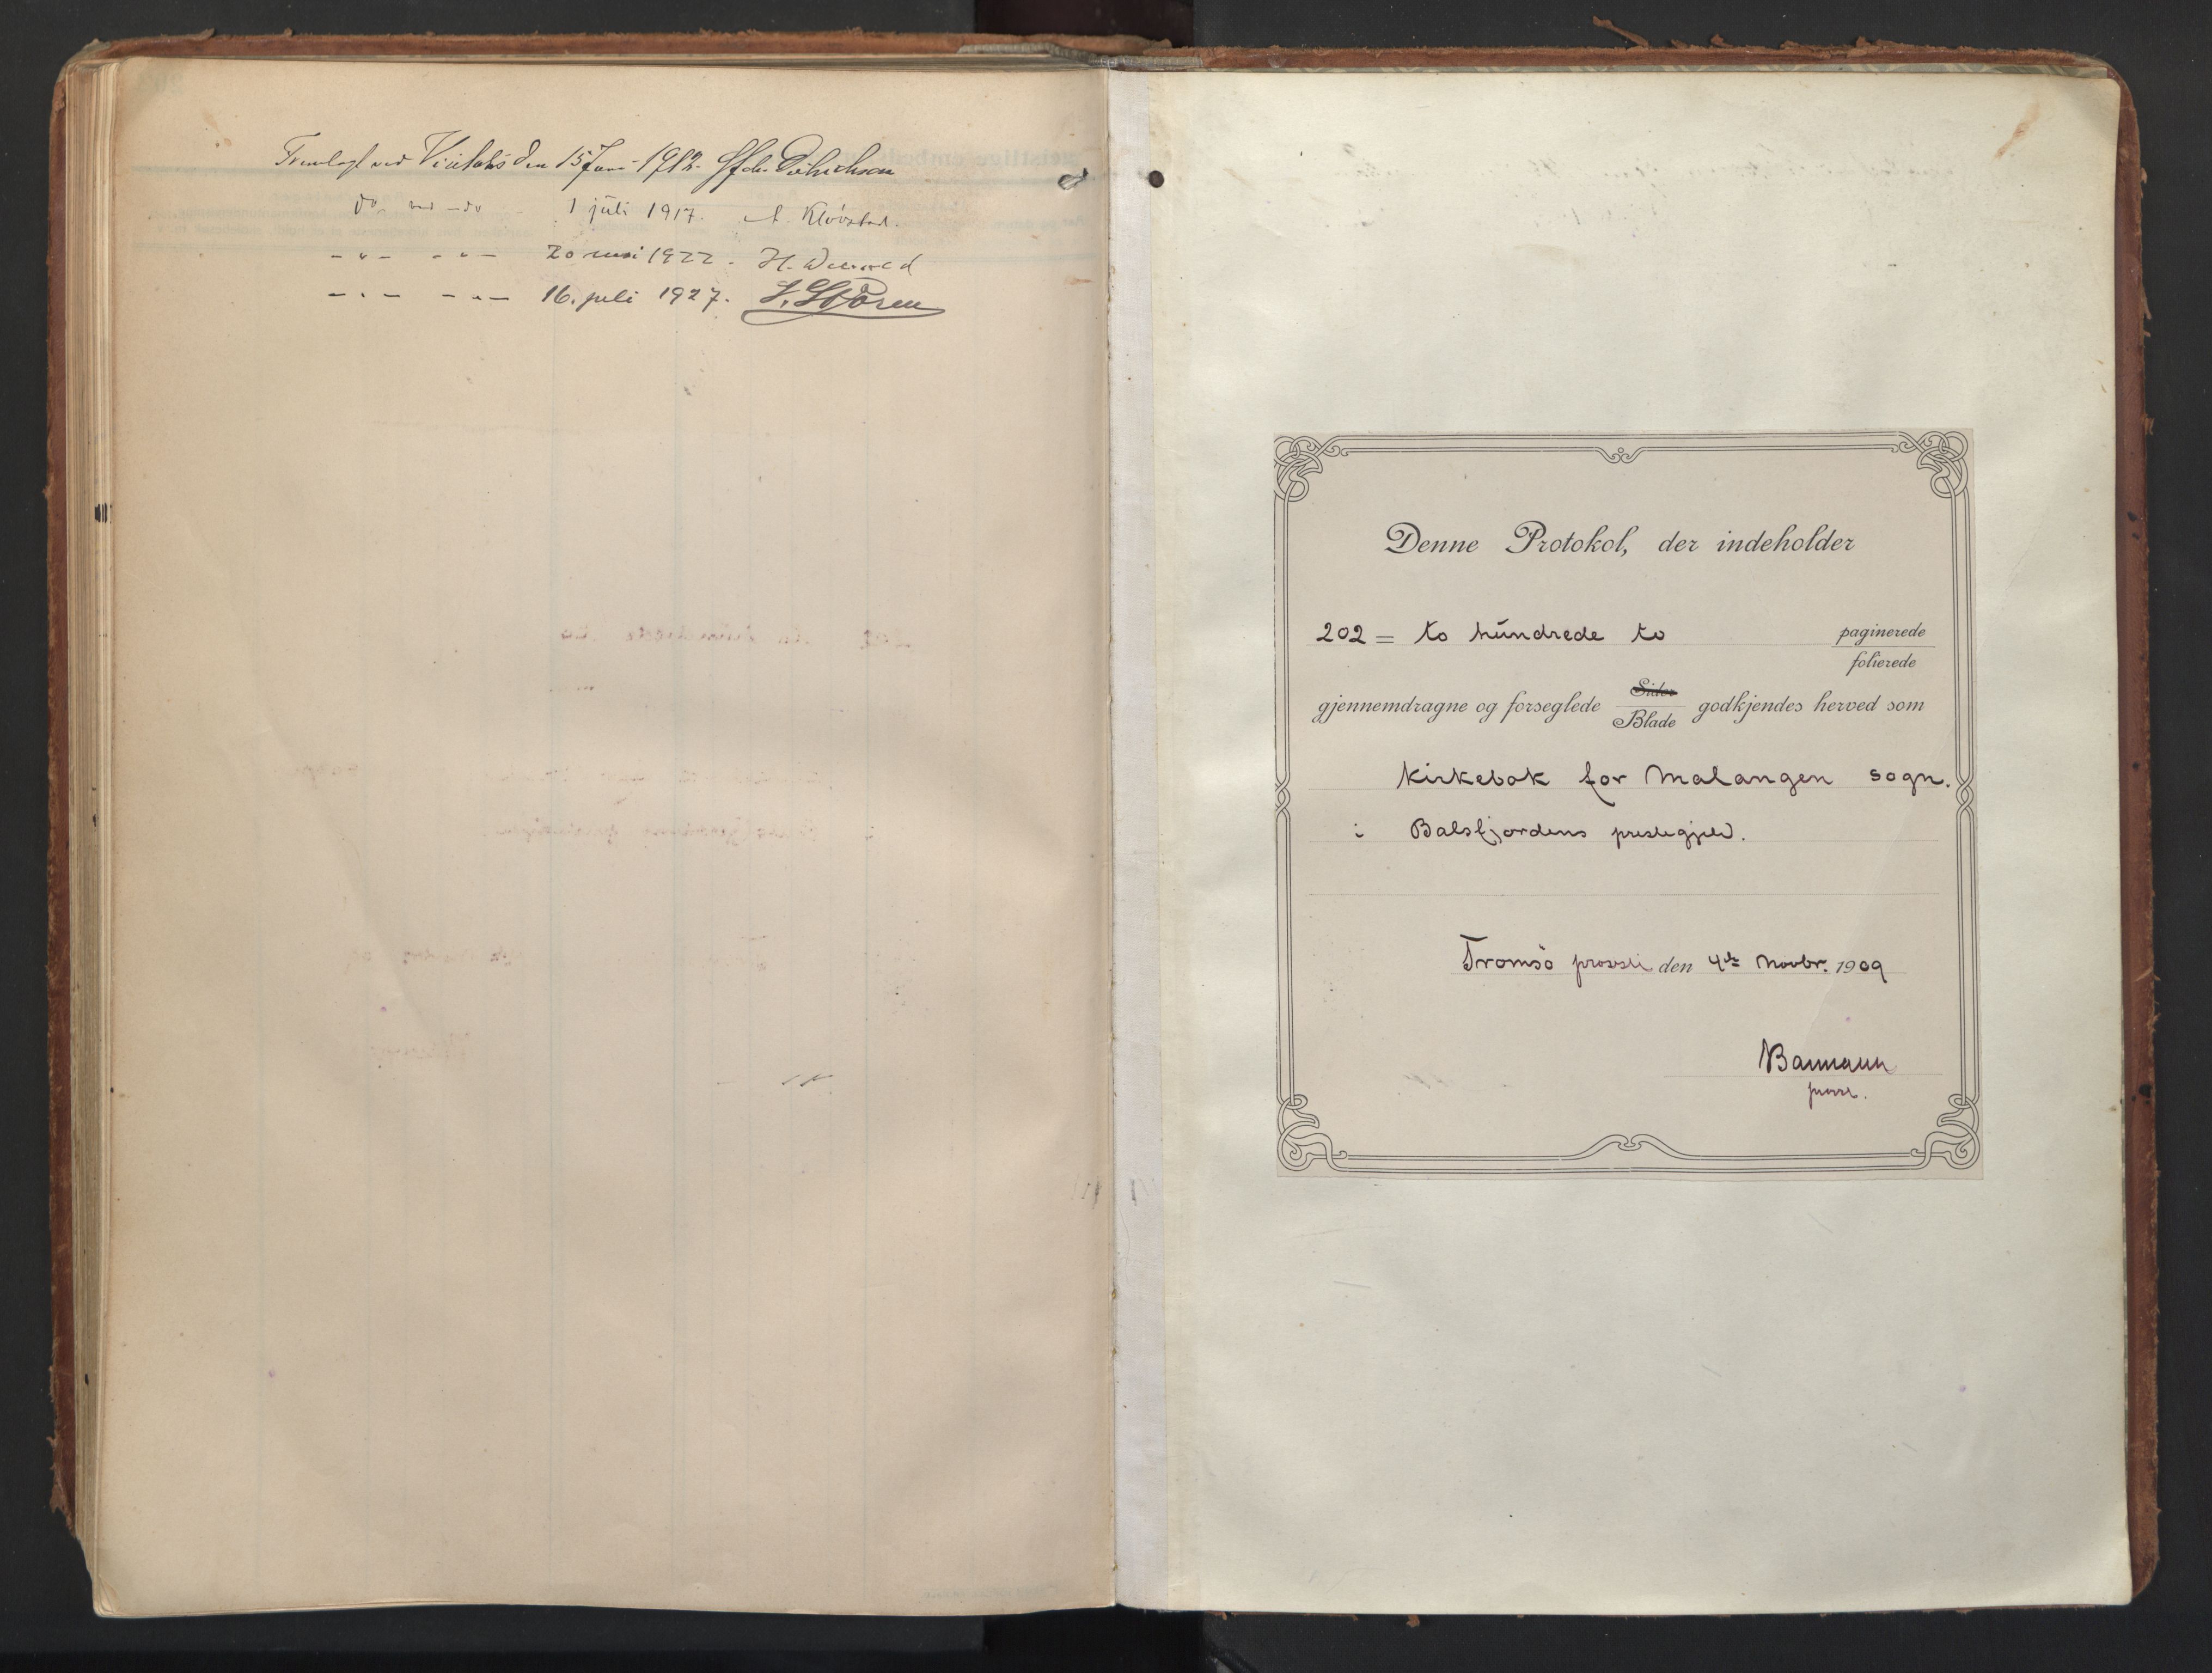 Fremlagt ved Visitats den 15 Juni 1912. Dietrichson
do, ved -do 1 júli 1917. A. Kløvstad.
- " - - " - 20 mai 1922. H.
- " - - " - 16. juli 1927. J. Støren
Denne Protokol, der indeholder
202 = to húndrede to paginerede
folierede
gjennemdragne og forseglede Sider godkjendes herved som
Blade
kirkebok for Malangen sogn.
i Balsfjordens prestegjeld.
Tromsö prosti den 4de Novbr. 1909
Baumann
provst.